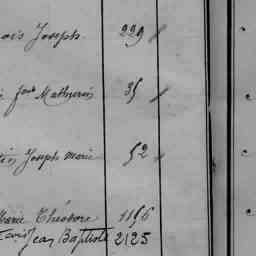 ois Joseph 229
Mathurin 35
Joseph marie 52
Marie Théodore 1156
Jean Baptiste 2125